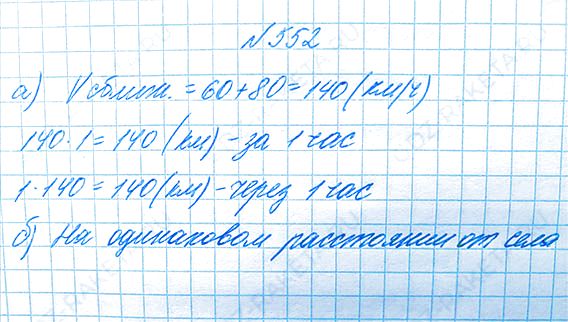 №552
а) Vсближ. = 60+80 = 140 (км/ч)
140·1 = 140 (км) - за 1 час
1·140 = 140 (км) - через 1 час
б) На одинаковом расстоянии от села